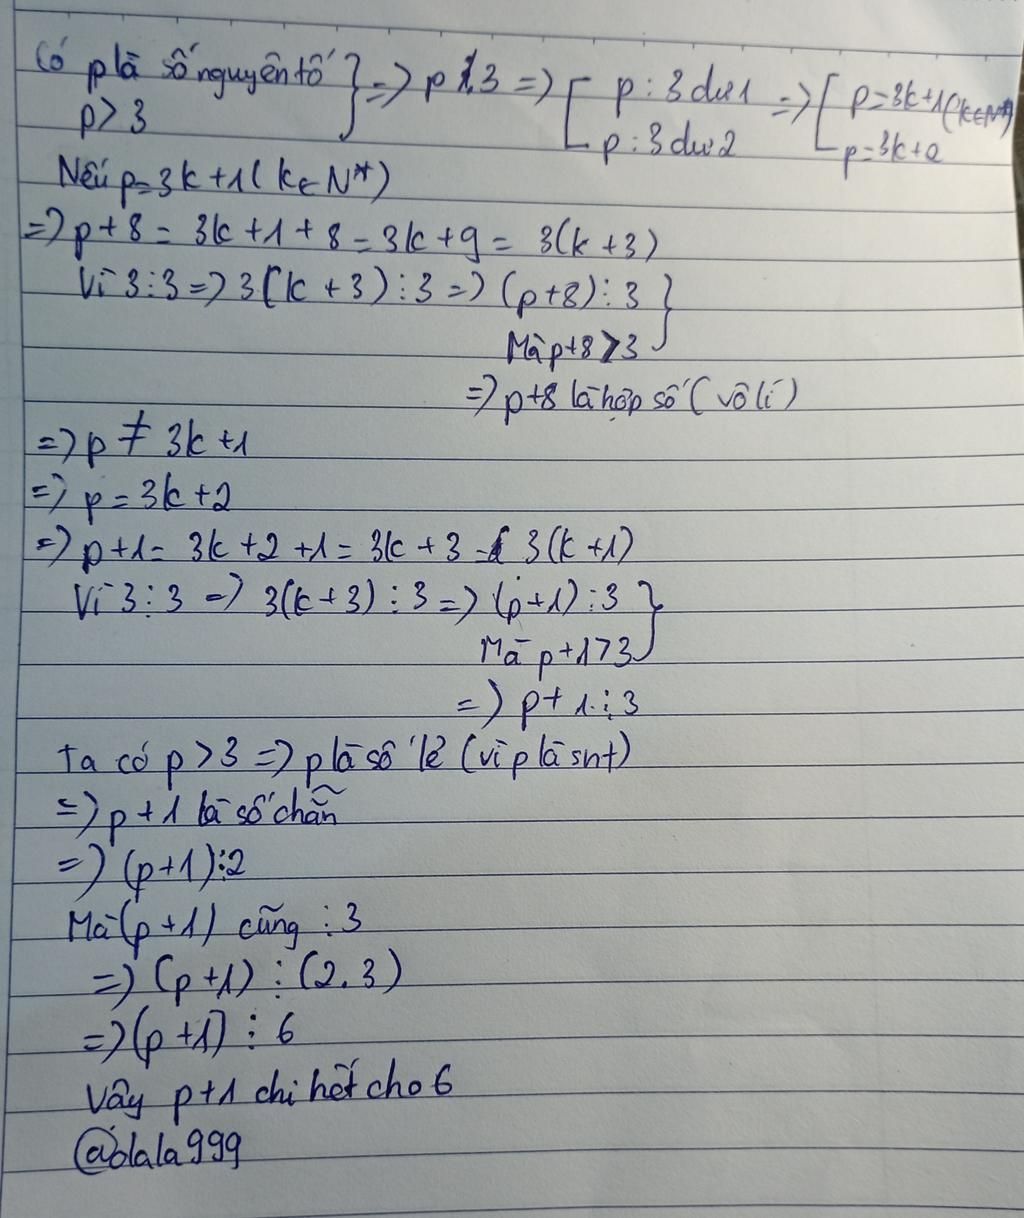 Có p là số nguyên tố } => p ⋮̸ 3 => [ p : 3 dư 1 => [ p = 3k + 1 (k ∈ N*)
p > 3 p : 3 dư 2 p = 3k + 2
Nếu p = 3k + 1 ( k ∈ N*)
=> p + 8 = 3k + 1 + 8 = 3k + 9 = 3(k + 3)
Vì 3 ⋮ 3 => 3(k + 3) ⋮ 3 => (p+8) ⋮ 3 }
Mà p+8 > 3
=> p+8 là hợp số (vô lí)
=> p ≠ 3k + 1
=> p = 3k + 2
=> p + 1 = 3k + 2 + 1 = 3k + 3 = 3(k + 1)
Vì 3 ⋮ 3 => 3(k + 3) ⋮ 3 => (p + 1) ⋮ 3 }
Mà p + 1 > 3
=> p + 1 ⋮ 3
Ta có p > 3 => p là số lẻ (vì p là snt)
=> p + 1 là số chẵn
=> (p + 1) ⋮ 2
Mà (p + 1) cũng ⋮ 3
=> (p + 1) ⋮ (2.3)
=> (p + 1) ⋮ 6
Vậy p + 1 chi hết cho 6
@olala999